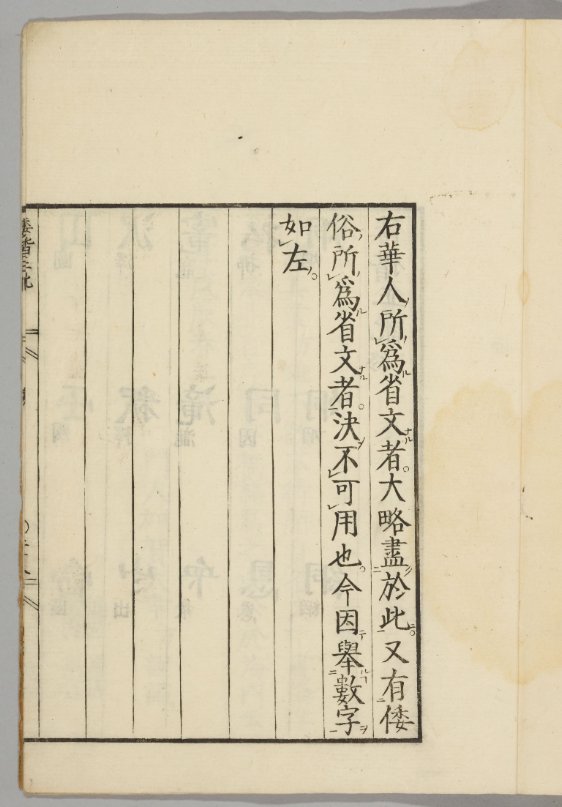 右華人所爲省文者大略盡於此又有倭
俗所爲省文者決不可用也今因舉數字
如左